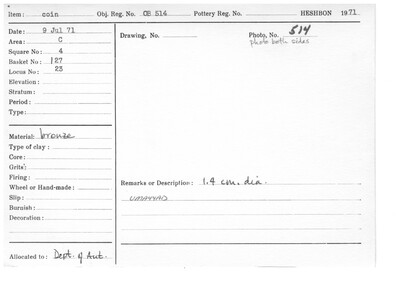 Item: coin Obj. Reg. No. OB 514 Pottery Reg. No. HESHBON 1971
Date: 9 Jul 71
Area: C
Square No: 4
Basket No: 127
Locus No: 23
Elevation:
Stratum:
Period:
Type:
Drawing, No. Photo, No. 514
photo both sides
Material: bronze
Type of clay:
Core:
Grits:
Firing:
Wheel or Hand-made:
Slip:
Burnish:
Decoration:
Remarks or Description: 1.4 cm. dia.
UMAYYAD
Allocated to: Dept. of Ant.